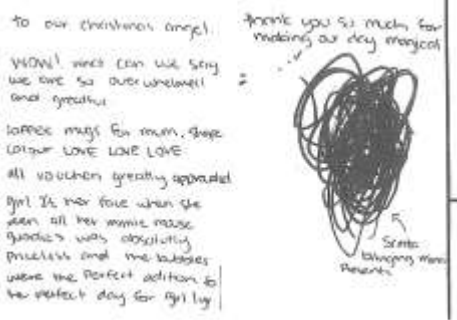 to our christmas angel.
WOW! what can we say
we are so overwhelmed
and greatful
coffee mugs for mum, shape
colour LOVE LOVE LOVE
all vouchers greatly
girl her face when she
seen all her minnie mouse
goodies was absolutly
priceless and the bubbles
were the perfect adition to
her perfect day for girl
thank you so much for
making our day magical
Santa
bringing
Presents